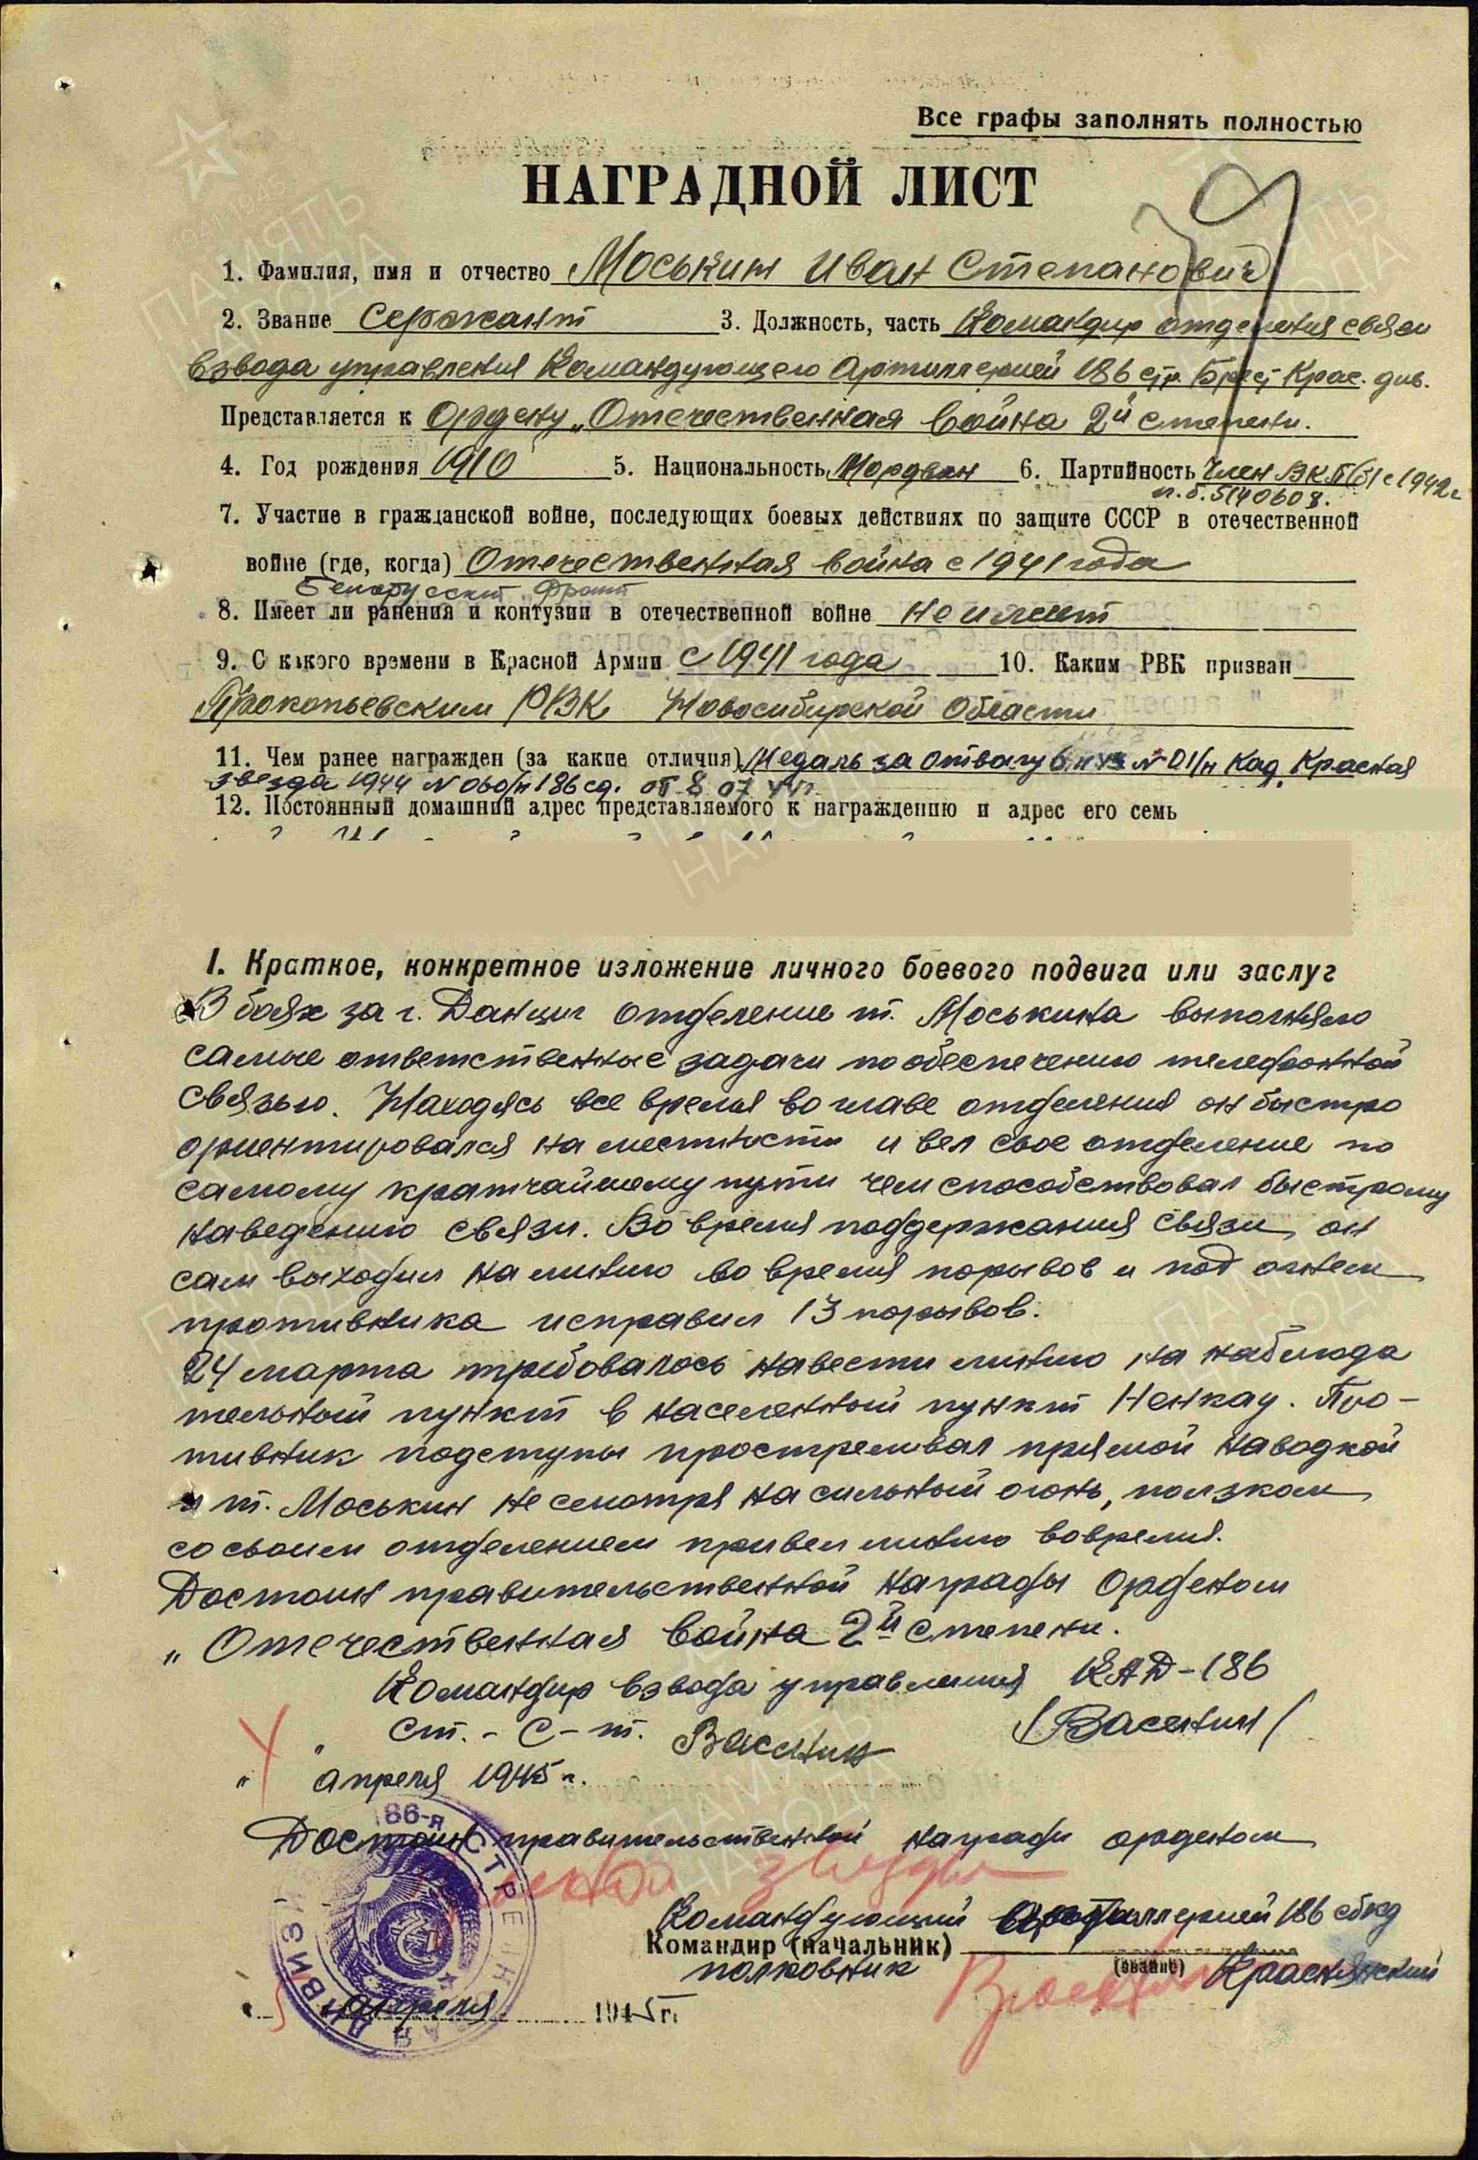 Все графы заполнять полностью
НАГРАДНОЙ ЛИСТ
1. Фамилия, имя и отчество Моськин Иван Степанович
2. Звание Сержант 3. Должность, часть Командир отделения связи
взвода управления Командующего Артиллерией 186 стр. Брест Крас. див.
Представляется к Ордену „Отечественная Война 2й степени.
4. Год рождения 1910 5. Национальность Мордвин 6. Партийность Член ВКП(б) с 1942г
п.б. 5140608.
7. Участие в гражданской войне, последующих боевых действиях по защите СССР в отечественной
войне (где, когда) Отечественная война с 1941 года
Белорусский Фронт
8. Имеет ли ранения и контузии в отечественной войне не имеет
9. С какого времени в Красной Армии с 1941 года 10. Каким РВК призван
Прокопьевским РВК Новосибирской Области
11. Чем ранее награжден (за какие отличия) Медаль за отвагу № 01/н Кад Красная
звезда 1944 № 060/н 186 сд. от 8 07 44г.
12. Постоянный домашний адрес представляемого к награждению и адрес его семь
I. Краткое, конкретное изложение личного боевого подвига или заслуг
В боях за г. Данциг отделение т. Моськина выполняло
самые ответственные задачи по обеспечению телефонной
связью. Находясь все время во главе отделения он быстро
ориентировался на местности и вел свое отделение по
самому кратчайшему пути чем способствовал быстрому
наведению связи. Во время поддержания связи он
сам выходил на линию во время порывов и под огнем
противника исправил 13 порывов.
24 марта требовалось навести линию на наблюда
тельный пункт в населенный пункт Ненкау. Про-
тивник подступы простреливал прямой наводкой
и т. Моськин не смотря на сильный огонь, ползком
со своим отделением привел линию вовремя.
Достоин правительственной награды Орденом
„Отечественная война 2й степени.
Командир взвода управления КАД-186
ст. - с-т. Васенин /Васенин/
„ " апреля 1945 г.
Достоин правительственной награды орденом
звезды
Командующий Артиллерией 186 сбкд
Командир (начальник)
(звание)
полковник Краснянский
апреля 1945 г.
86-я СТРЕЛКОВАЯ ДИВИЗИ
ПАМЯТЬ НАРОДА